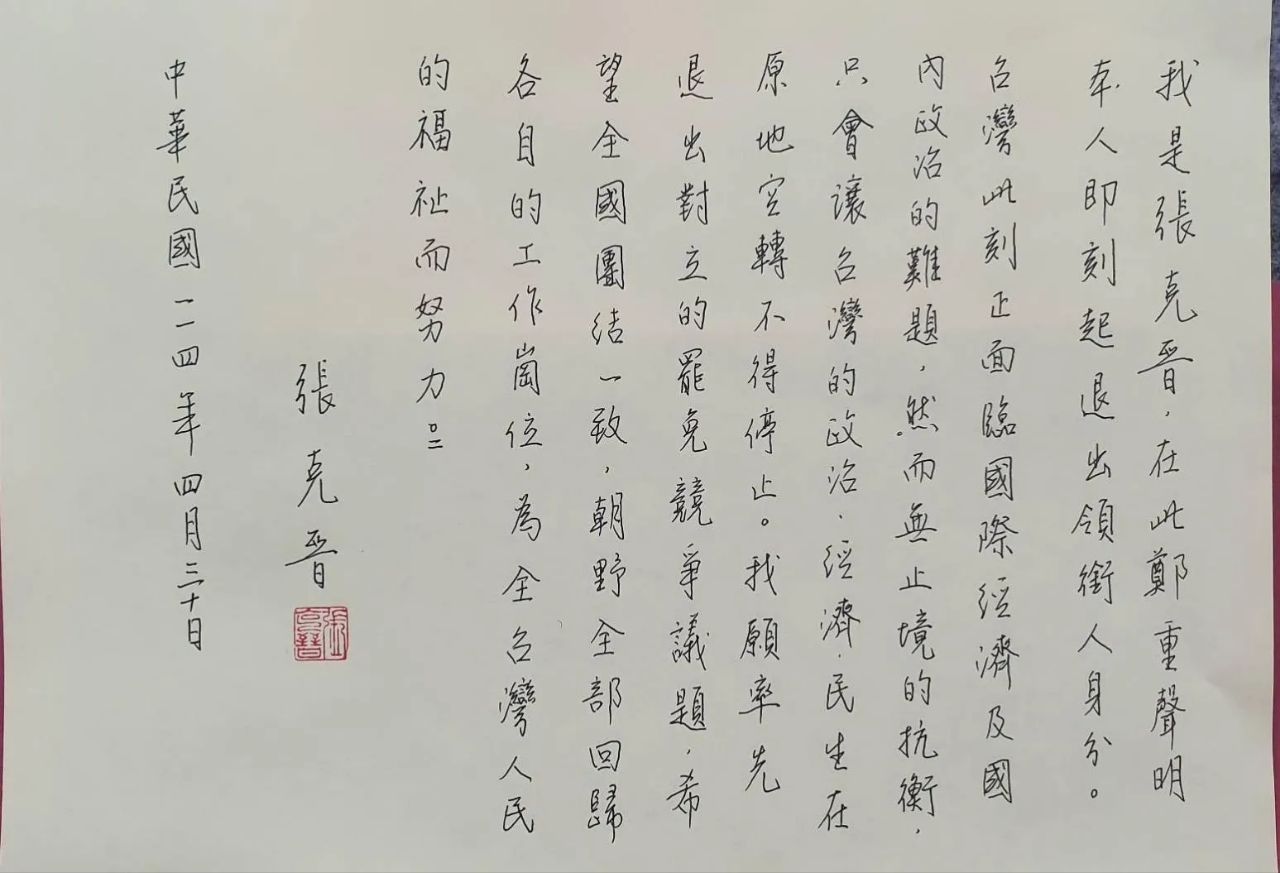 我是張克晉，在此鄭重聲明
本人即刻起退出領銜人身分。
台灣此刻正面臨國際經濟及國
內政治的難題，然而無止境的抗衡，
只會讓台灣的政治、經濟、民生在
原地空轉不得停止。我願率先
退出對立的罷免競爭議題，希
望全國團結一致，朝野全部回歸
各自的工作崗位，為全台灣人民
的福祉而努力。
張克晉
張克晉
中華民國一一四年四月三十日